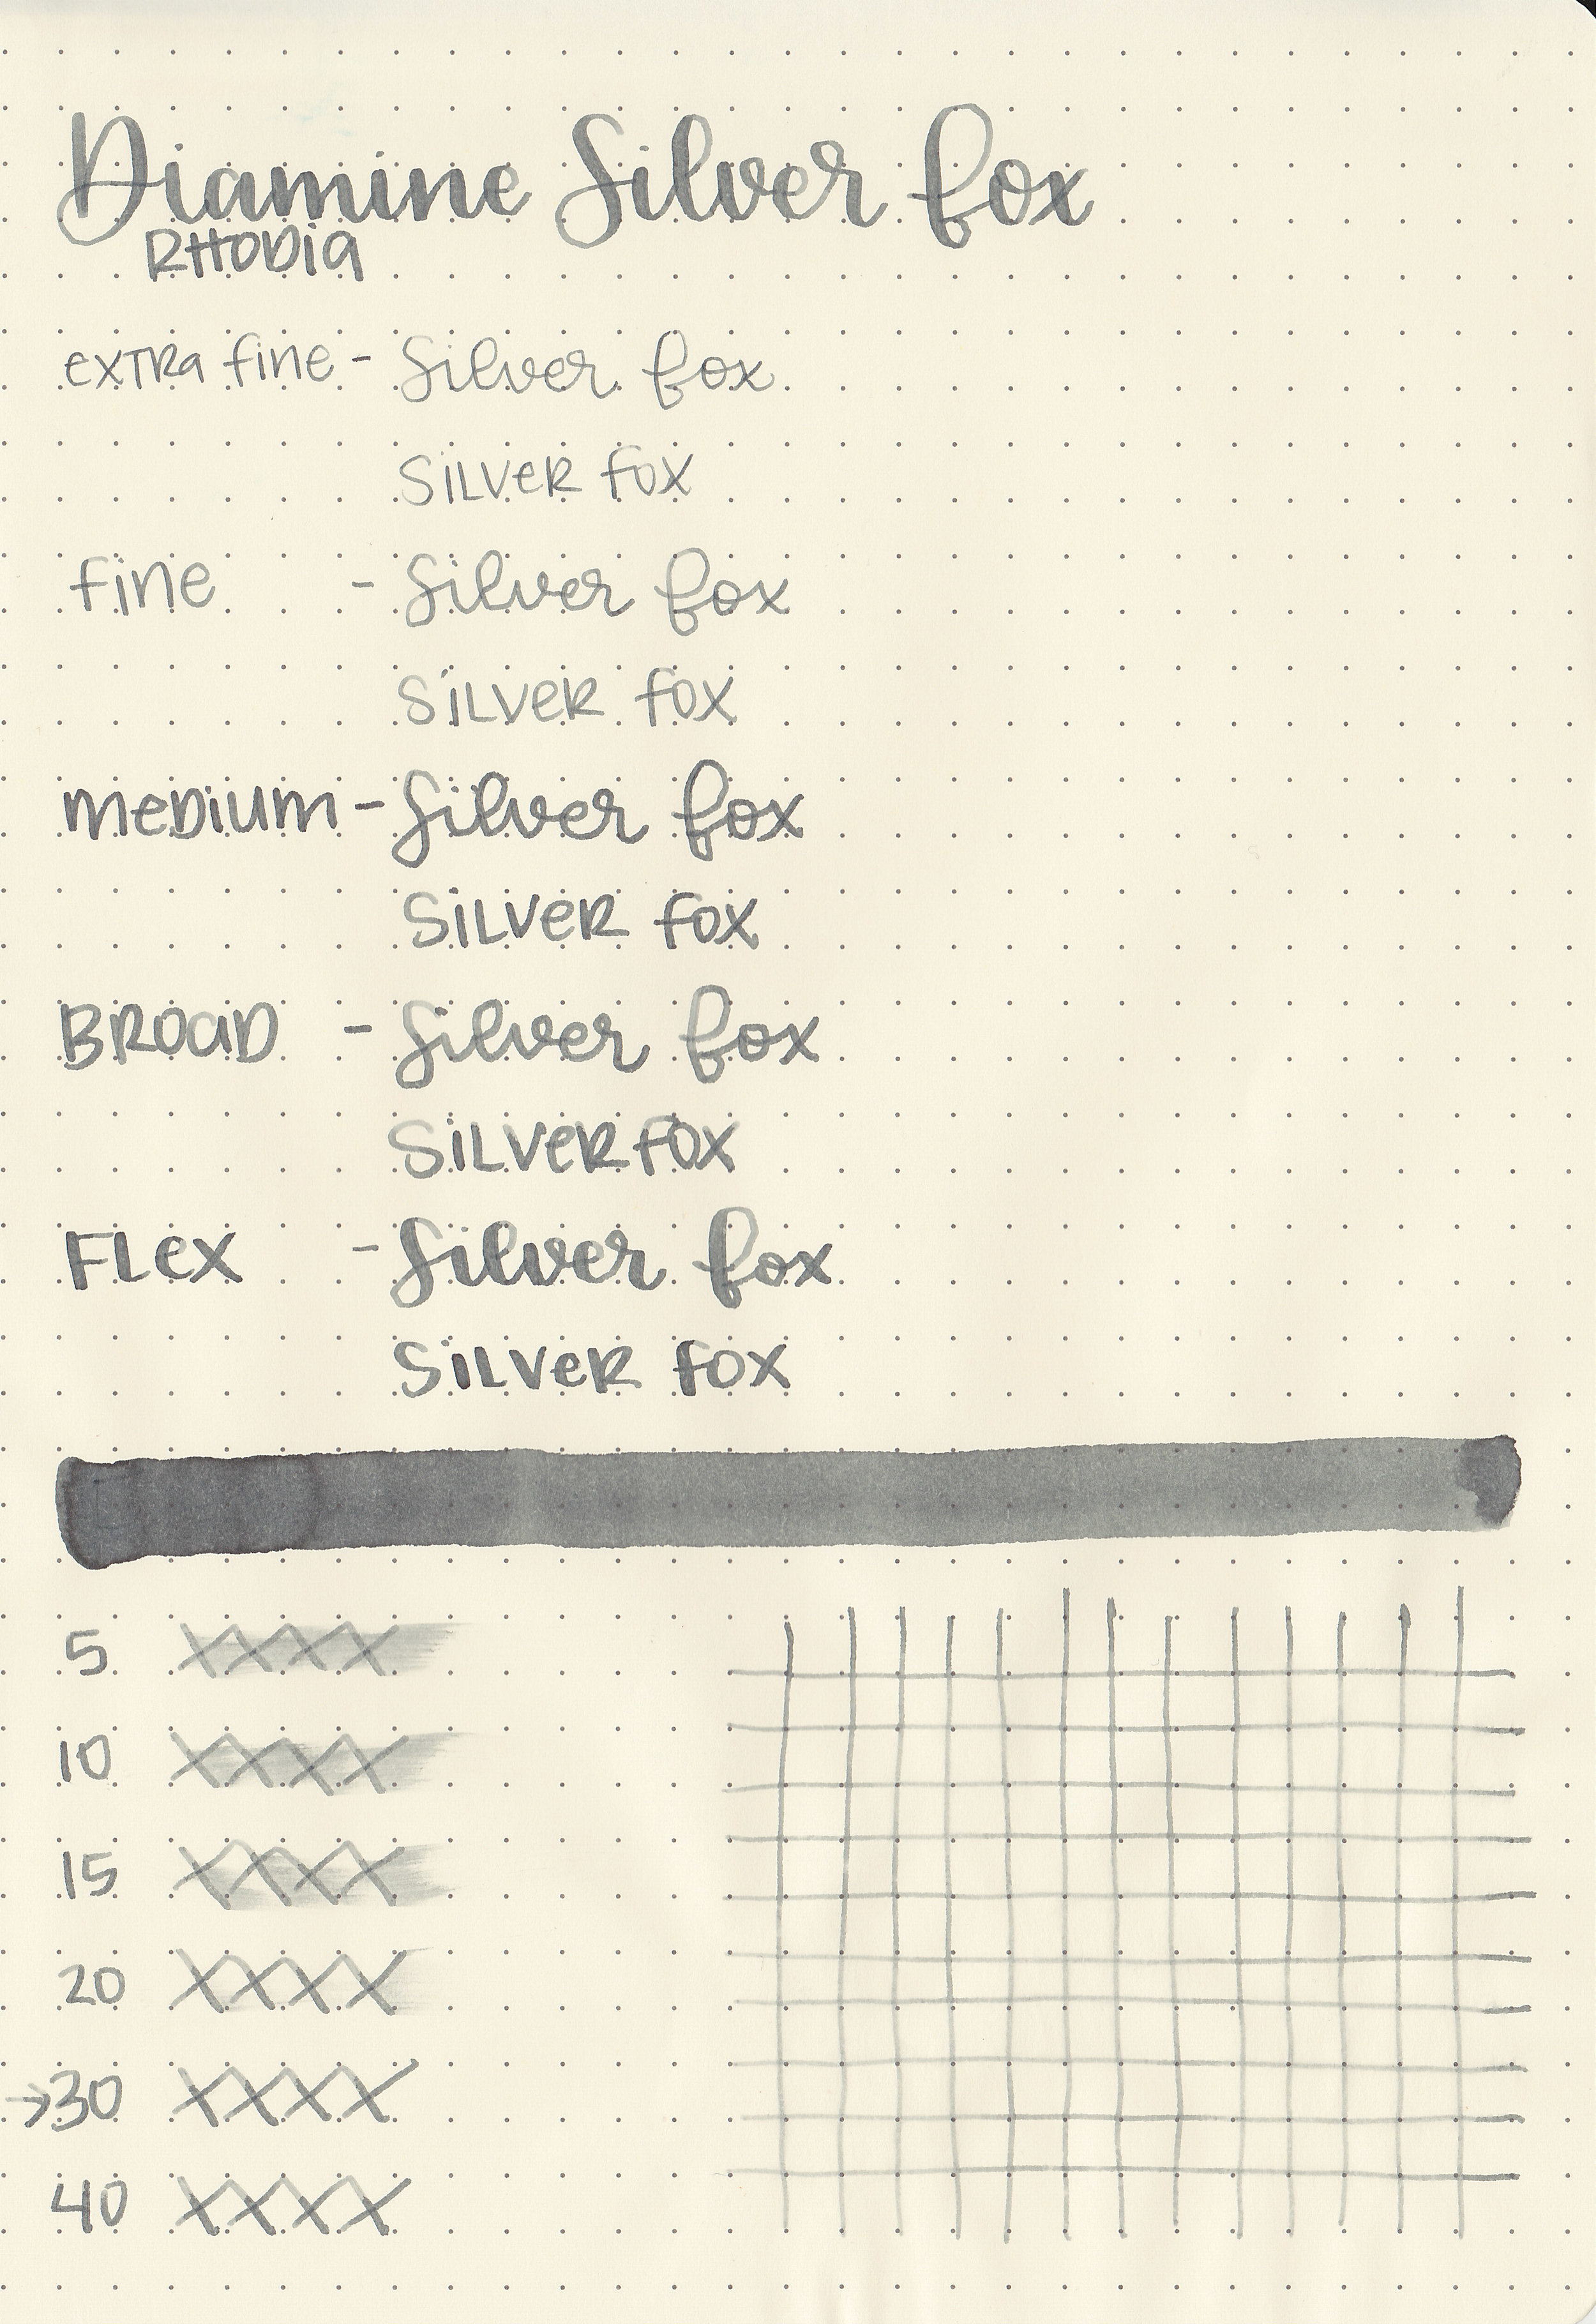 Diamine Silver Fox
RHODIA
extra fine - Silver fox
SILVER FOX
fine - Silver fox
SILVER FOX
MEDIUM - Silver fox
SILVER FOX
BROAD - Silver fox
SILVER FOX
FLEX - Silver fox
SILVER FOX
5 XXXX
10 XXXX
15 XXXX
20 XXXX
→30 XXXX
40 XXXX